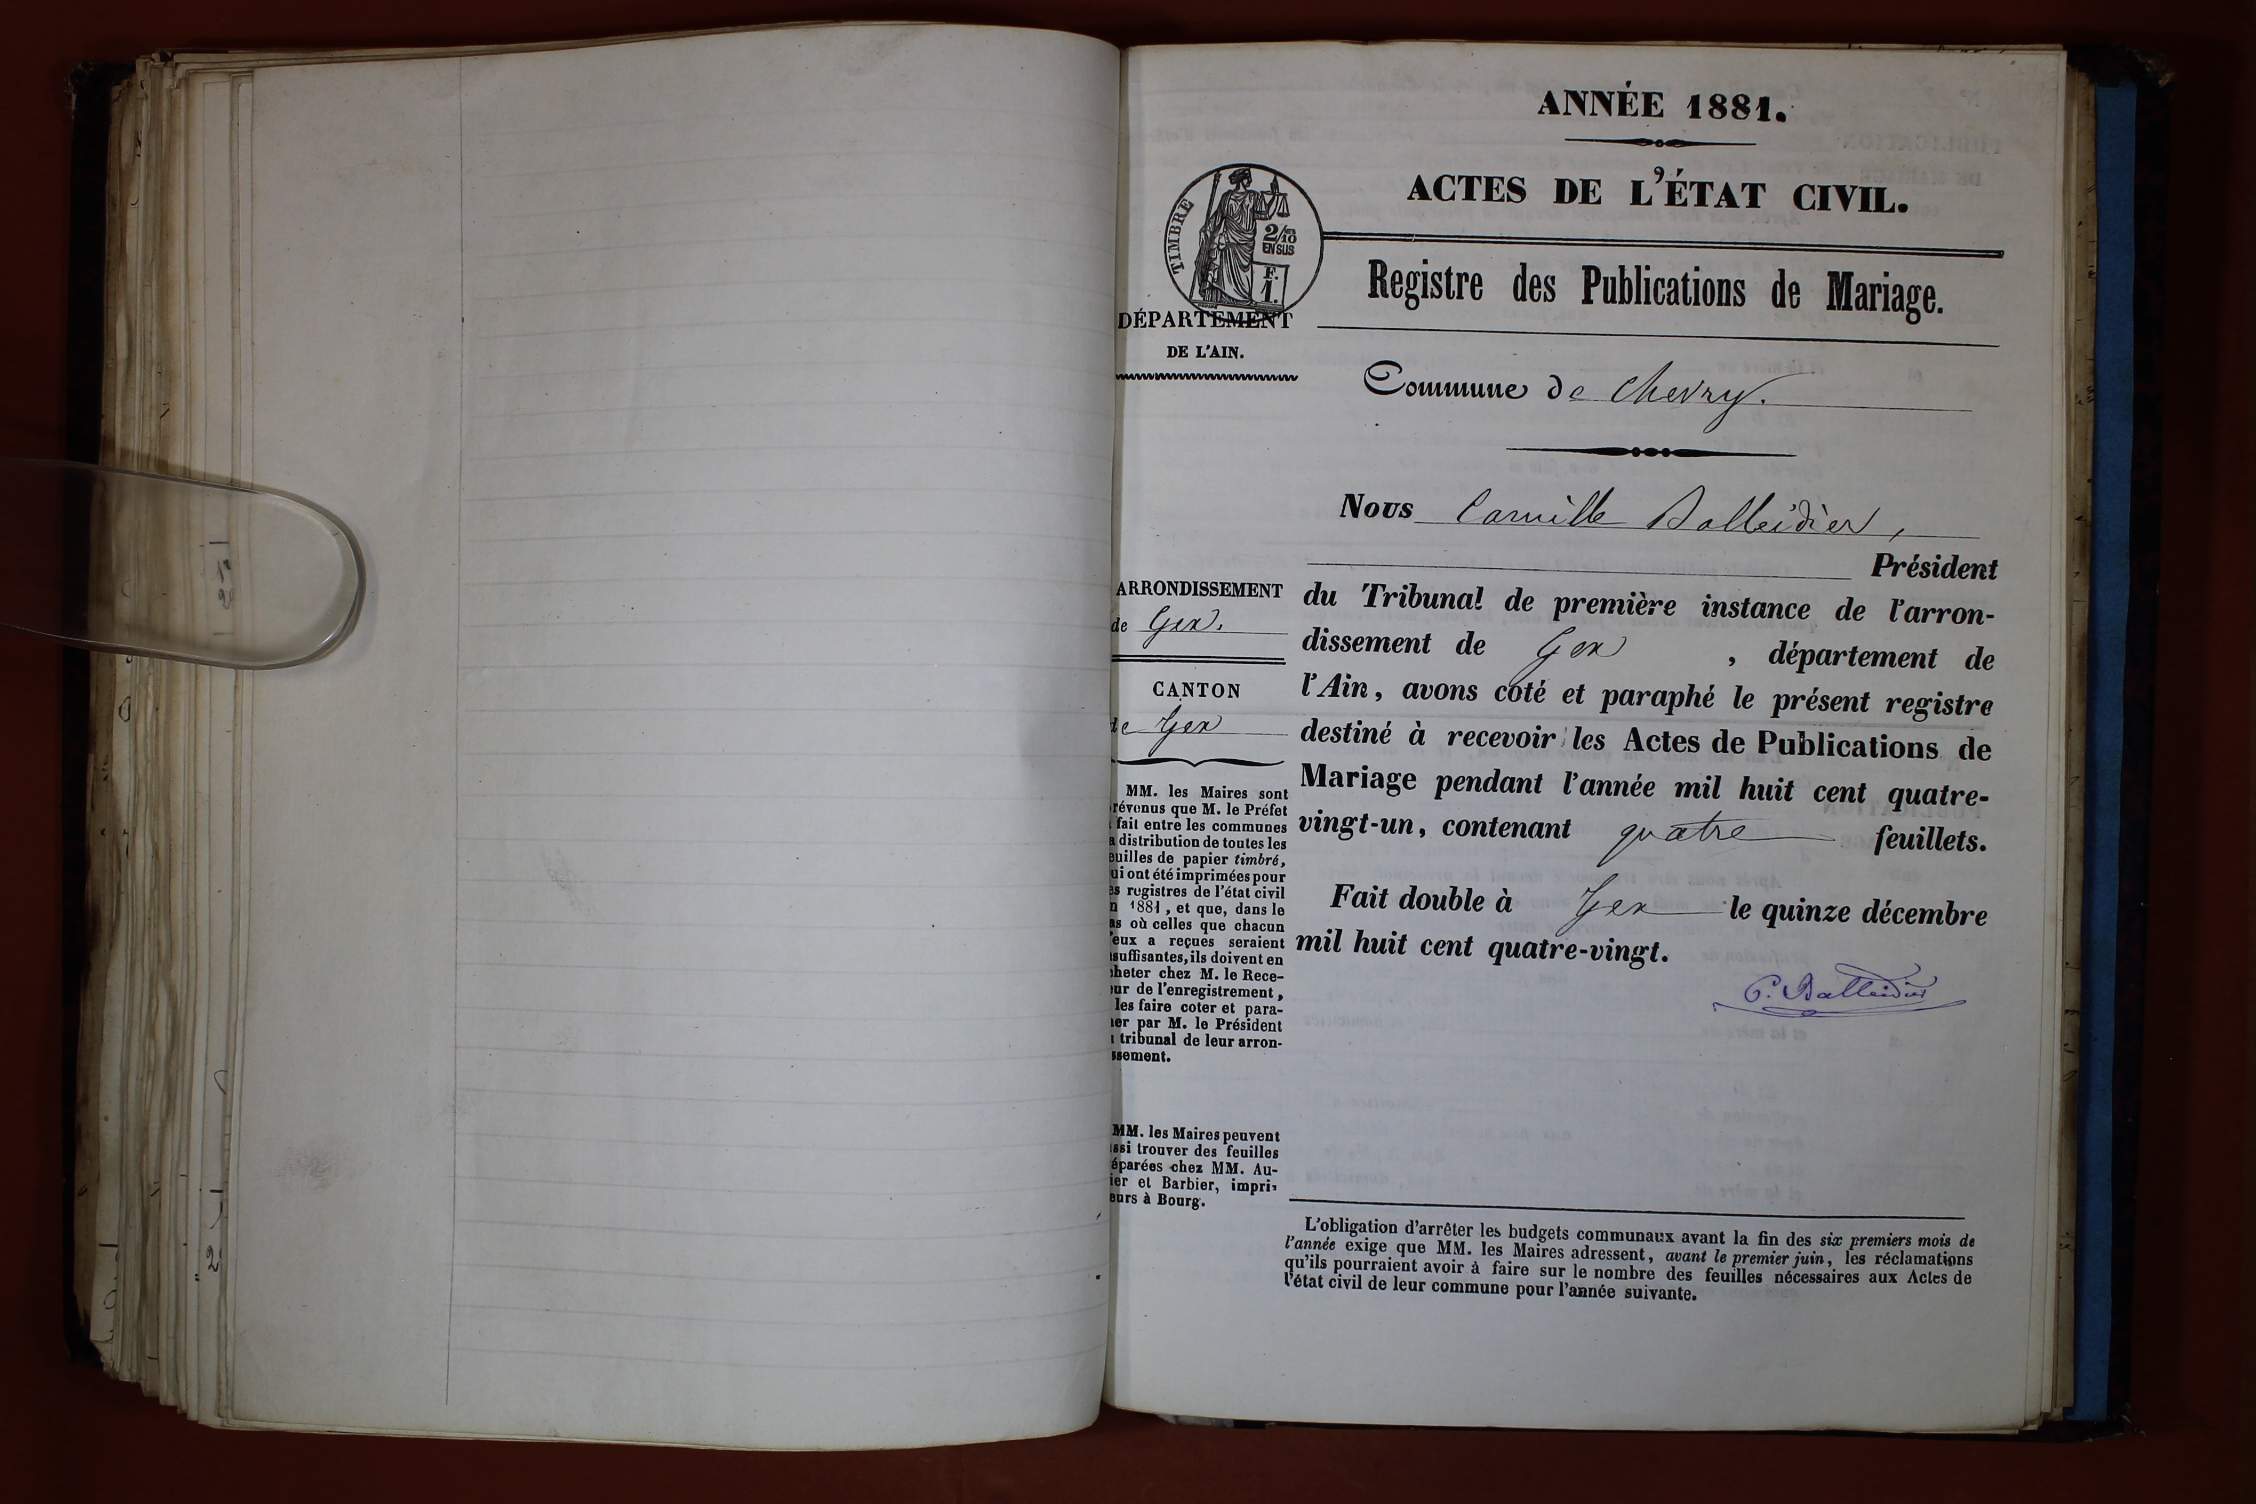 ANNÉE 1881.
ACTES DE L'ÉTAT CIVIL.
TIMBRE
2/10
EN SUS
F.
1.
Registre des Publications de Mariage.
DÉPARTEMENT
DE L'AIN.
Commune de Chevry.
Nous Camille Balleidier,
Président
du Tribunal de première instance de l'arron-
dissement de Gex, département de
l'Ain, avons coté et paraphé le présent registre
destiné à recevoir les Actes de Publications de
Mariage pendant l'année mil huit cent quatre-
vingt-un, contenant quatre feuillets.
Fait double à Gex le quinze décembre
mil huit cent quatre-vingt.
C. Balleidier
ARRONDISSEMENT
de Gex.
CANTON
de Gex
MM. les Maires sont
révenus que M. le Préfet
fait entre les communes
distribution de toutes les
euilles de papier timbré,
ui ont été imprimées pour
es registres de l'état civil
n 1881, et que, dans le
as où celles que chacun
'eux a reçues seraient
suffisantes, ils doivent en
heter chez M. le Rece-
ur de l'enregistrement,
les faire coter et para-
er par M. le Président
tribunal de leur arron-
ssement.
MM. les Maires peuvent
ssi trouver des feuilles
éparées chez MM. Au-
ier et Barbier, impri-
eurs à Bourg.
L'obligation d'arrêter les budgets communaux avant la fin des six premiers mois de
l'année exige que MM. les Maires adressent, avant le premier juin, les réclamations
qu'ils pourraient avoir à faire sur le nombre des feuilles nécessaires aux Actes de
l'état civil de leur commune pour l'année suivante.